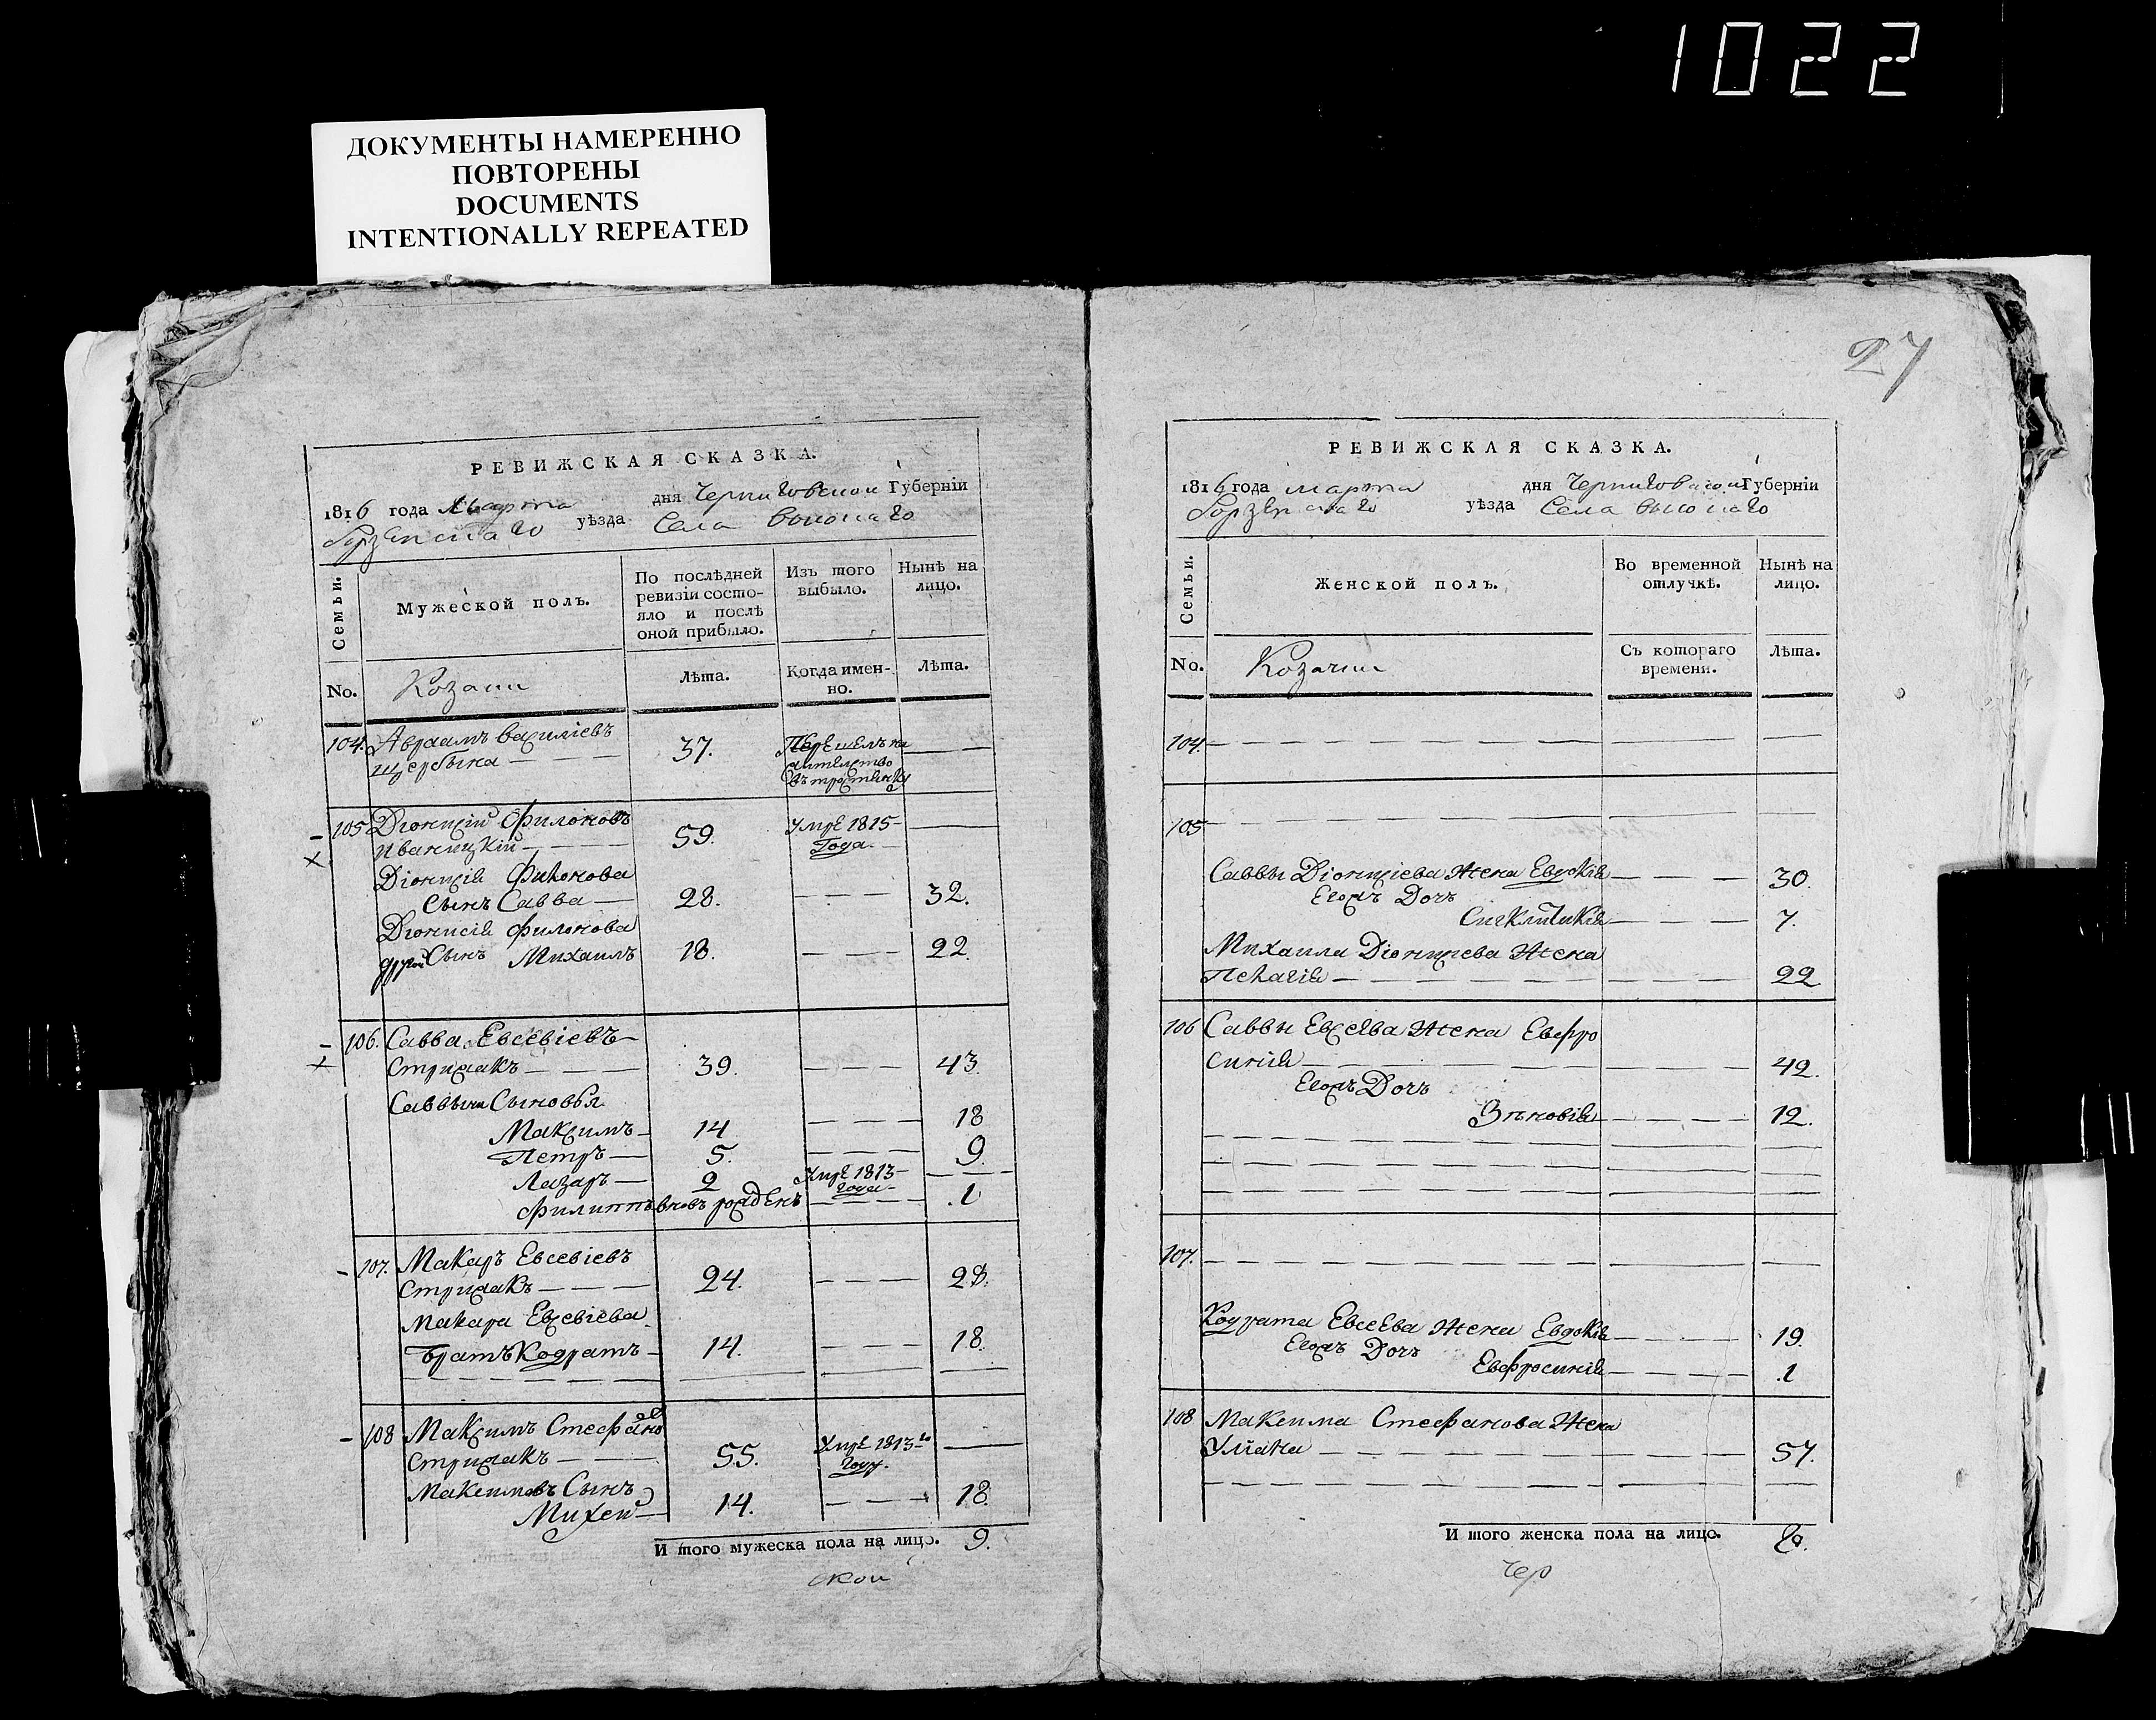 1022
ДОКУМЕНТЫ НАМЕРЕННО
ПОВТОРЕНЫ
DOCUMENTS
INTENTIONALLY REPEATED
РЕВИЖСКАЯ СКАЗКА.
1816 года Марта дня Черниговской Губерніи
уѣзда Села Высокаго
Семьи.
Мужеской полъ.
По послѣдней
ревизіи состо-
яло и послѣ
оной прибыло.
Изъ того
выбыло.
Нынѣ на
лицо.
No.
Козаки
Лѣта.
Когда имен-
но.
Лѣта.
104. Авраамъ Василіевъ
Щербына 37. Перешелъ на
жителство
въ
105 Діонисій Филоновъ
Иваницкій 59. Умре 1815
Года
Діонисія Филонова
Сынъ Савва 28. 32.
Діонисія Филонова
другой Сынъ Михаилъ 18. 22.
106. Савва Евсевіевъ
Стрижакъ 39. 43.
Саввы Сыновья
Максимъ 14 18
Петръ 5. 9.
Лазарь 2 Умре 1813
года
Филиппъ вновь рожденъ 1
107. Макаръ Евсевіевъ
Стрижакъ 24. 28.
Макара Евсевіева
Братъ Кодратъ 14. 18.
108 Максимъ Стефановъ
Стрижакъ 55. Умре 1813го
Году.
Максимовъ Сынъ
Михей 14. 18.
И того мужеска пола на лицо. 9.
ской
27
РЕВИЖСКАЯ СКАЗКА.
1816 года марта дня Черниговской Губерніи
уѣзда Села Высокаго
Семьи.
Женской полъ.
Во временной
отлучкѣ.
Нынѣ на
лицо.
No.
Козачки
Съ котораго
времени.
Лѣта.
104.
105
Саввы Діонисіева Жена Евдокія 30.
Егожъ Дочь
Сигклитикія 7.
Михаила Діонисіева Жена
Пелагія 22
106 Саввы Евсеева Жена Евфро
синія 42.
Егожъ Дочь
Зѣновія 12.
107.
Кодрата Евсеева Жена Евдокія 19.
Егожъ Дочь
Евфросинія 1
108 Максима Стефанова Жена
Уліана 57.
И того женска пола на лицо. 8.
Чер